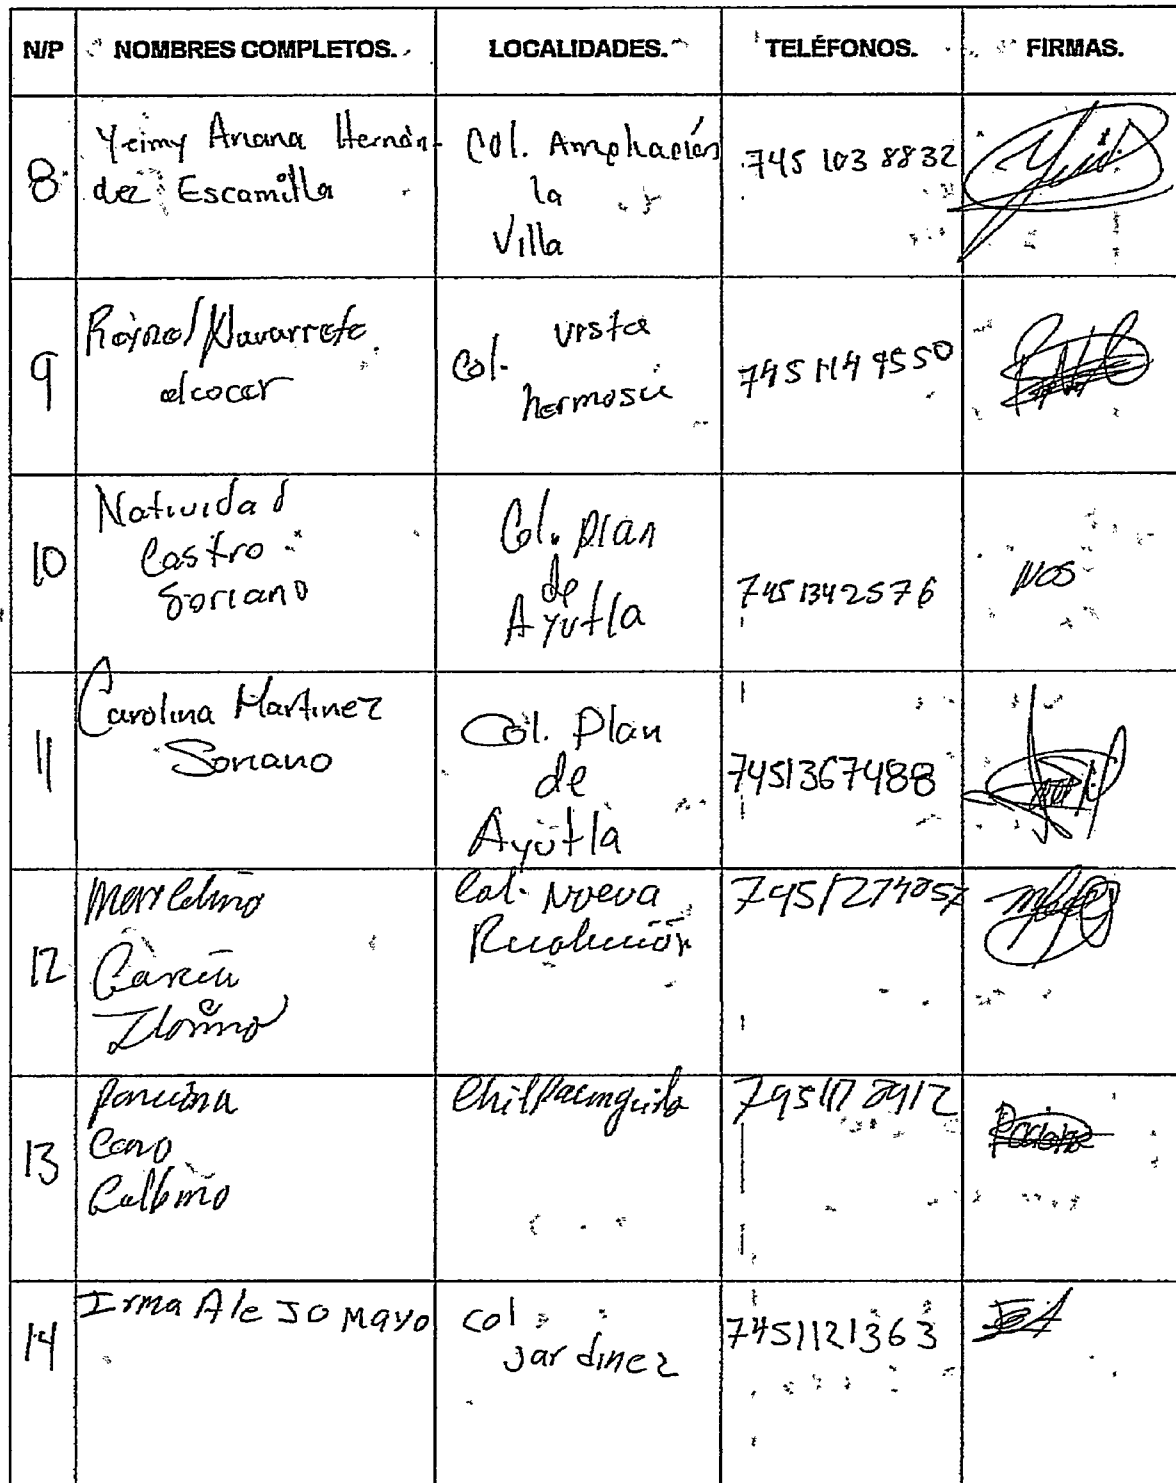 N/P NOMBRES COMPLETOS. LOCALIDADES. TELÉFONOS. FIRMAS.
8 Yeimy Ariana Hernán-
dez Escamilla
Col. Ampliación
la
Villa
745 103 8832
9
Navarrete
alcocer
Col. vista
hermosa
745
10 Natividad
Castro
Soriano
Col. plan
de
Ayutla
7451342576
NCS
11 Carolina Martinez
Soriano
Col. Plan
de
Ayutla
7451367488
12 Marcelino
García
Col. Nueva
Revolución
7451274057
13
Cano
Chilpancinguito
14 Irma Alejo Mayo
col
jardinez
7451121363